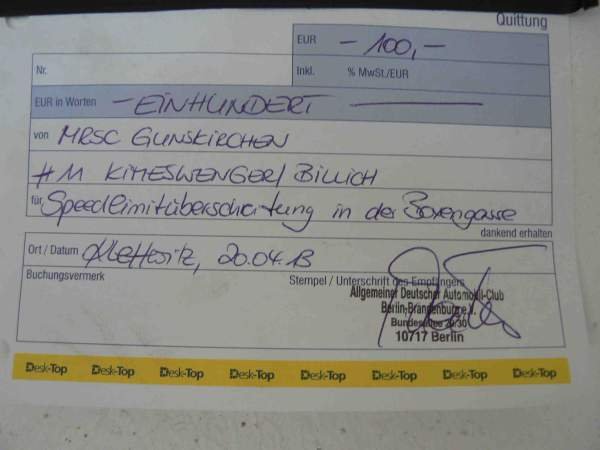 Quittung
EUR -100,-
Nr.
Inkl. % MwSt./EUR
EUR in Worten - EINHUNDERT -
von MRSC GUNSKIRCHEN
#11 KIMESWENGER/BILLICH
für Speedlimitüberschreitung in der Boxengasse
dankend erhalten
Ort / Datum 20.04.13
Buchungsvermerk
Stempel / Unterschrift des Empfängers
Allgemeiner Deutscher Automobil-Club
Berlin-Brandenburg e.V.
Bundesallee 29/30
10717 Berlin
Desk-Top Desk-Top Desk-Top Desk-Top Desk-Top Desk-Top Desk-Top Desk-Top